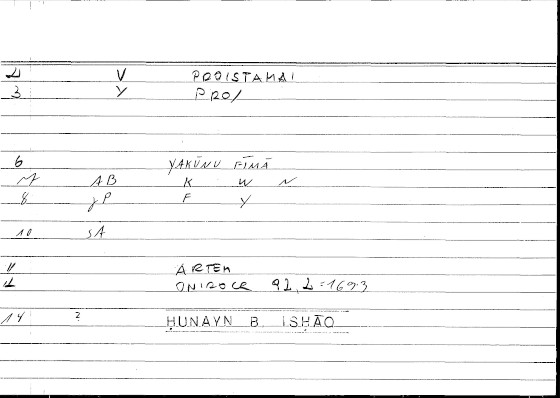 2 V PROISTAMAI
3 Y PRO/
6 YAKŪNU FĪMĀ
7 AB K W N
8 P F Y
10 SA
11 ARTEM
12 ONIROCR 92, 2 = 169.3
14 ? ḤUNAYN B. ISḤĀQ